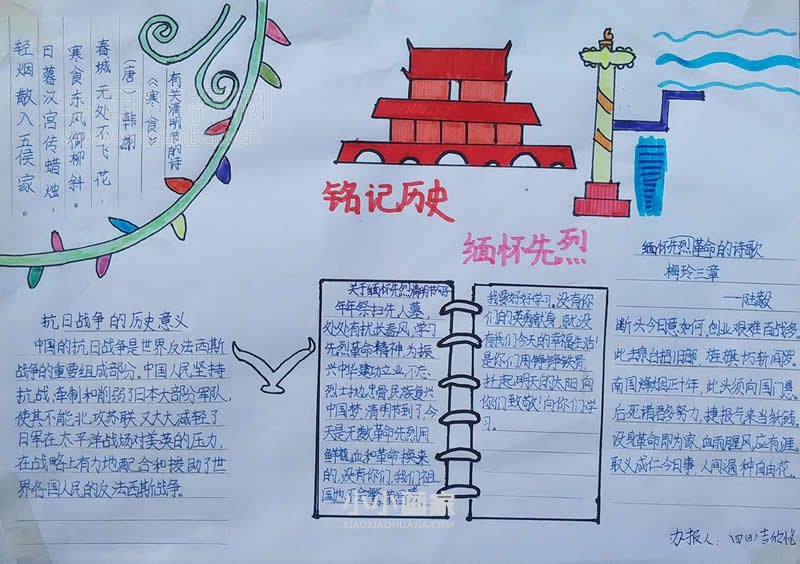 有关清明节的诗
《寒食》
(唐) 韩翃
春城无处不飞花，
寒食东风御柳斜。
日暮汉宫传蜡烛，
轻烟散入五侯家。
铭记历史
缅怀先烈
抗日战争的历史意义
中国的抗日战争是世界反法西斯
战争的重要组成部分。中国人民坚持
抗战，牵制和削弱了日本大部分军队，
使其不能北攻苏联，又大大减轻了
日军在太平洋战场对美英的压力，
在战略上有力地配合和援助了世
界各国人民的反法西斯战争。
关于缅怀先烈清明节的
年年祭扫先人墓，
处处有扰长春风，学习
先烈革命精神，为振
兴中华建功立业，不忘
烈士抛忠骨，民族复兴
中国梦，清明节到了，今
天是无数革命先烈用
鲜血和革命换来
的，没有你们，我们祖
国也
我要好好学习。没有你
们的英勇献身，就没
有我们今天的幸福生活！
是你们用铮铮铁骨
扛起明天的太阳，向
你们致敬！向你们学
习。
缅怀先烈革命的诗歌
梅玲三章
——陆毅
断头今日意如何，创业艰难百战多。
此去泉台招旧部，旌旗十万斩阎罗。
南国烽烟正十年，此头须向国门悬。
后死诸君多努力，捷报飞来当纸钱。
设身革命即为家，血雨腥风应有涯。
取义成仁今日事，人间遍种自由花。
办报人：
小小画家
XIAOXIAOHUAJIA.COM